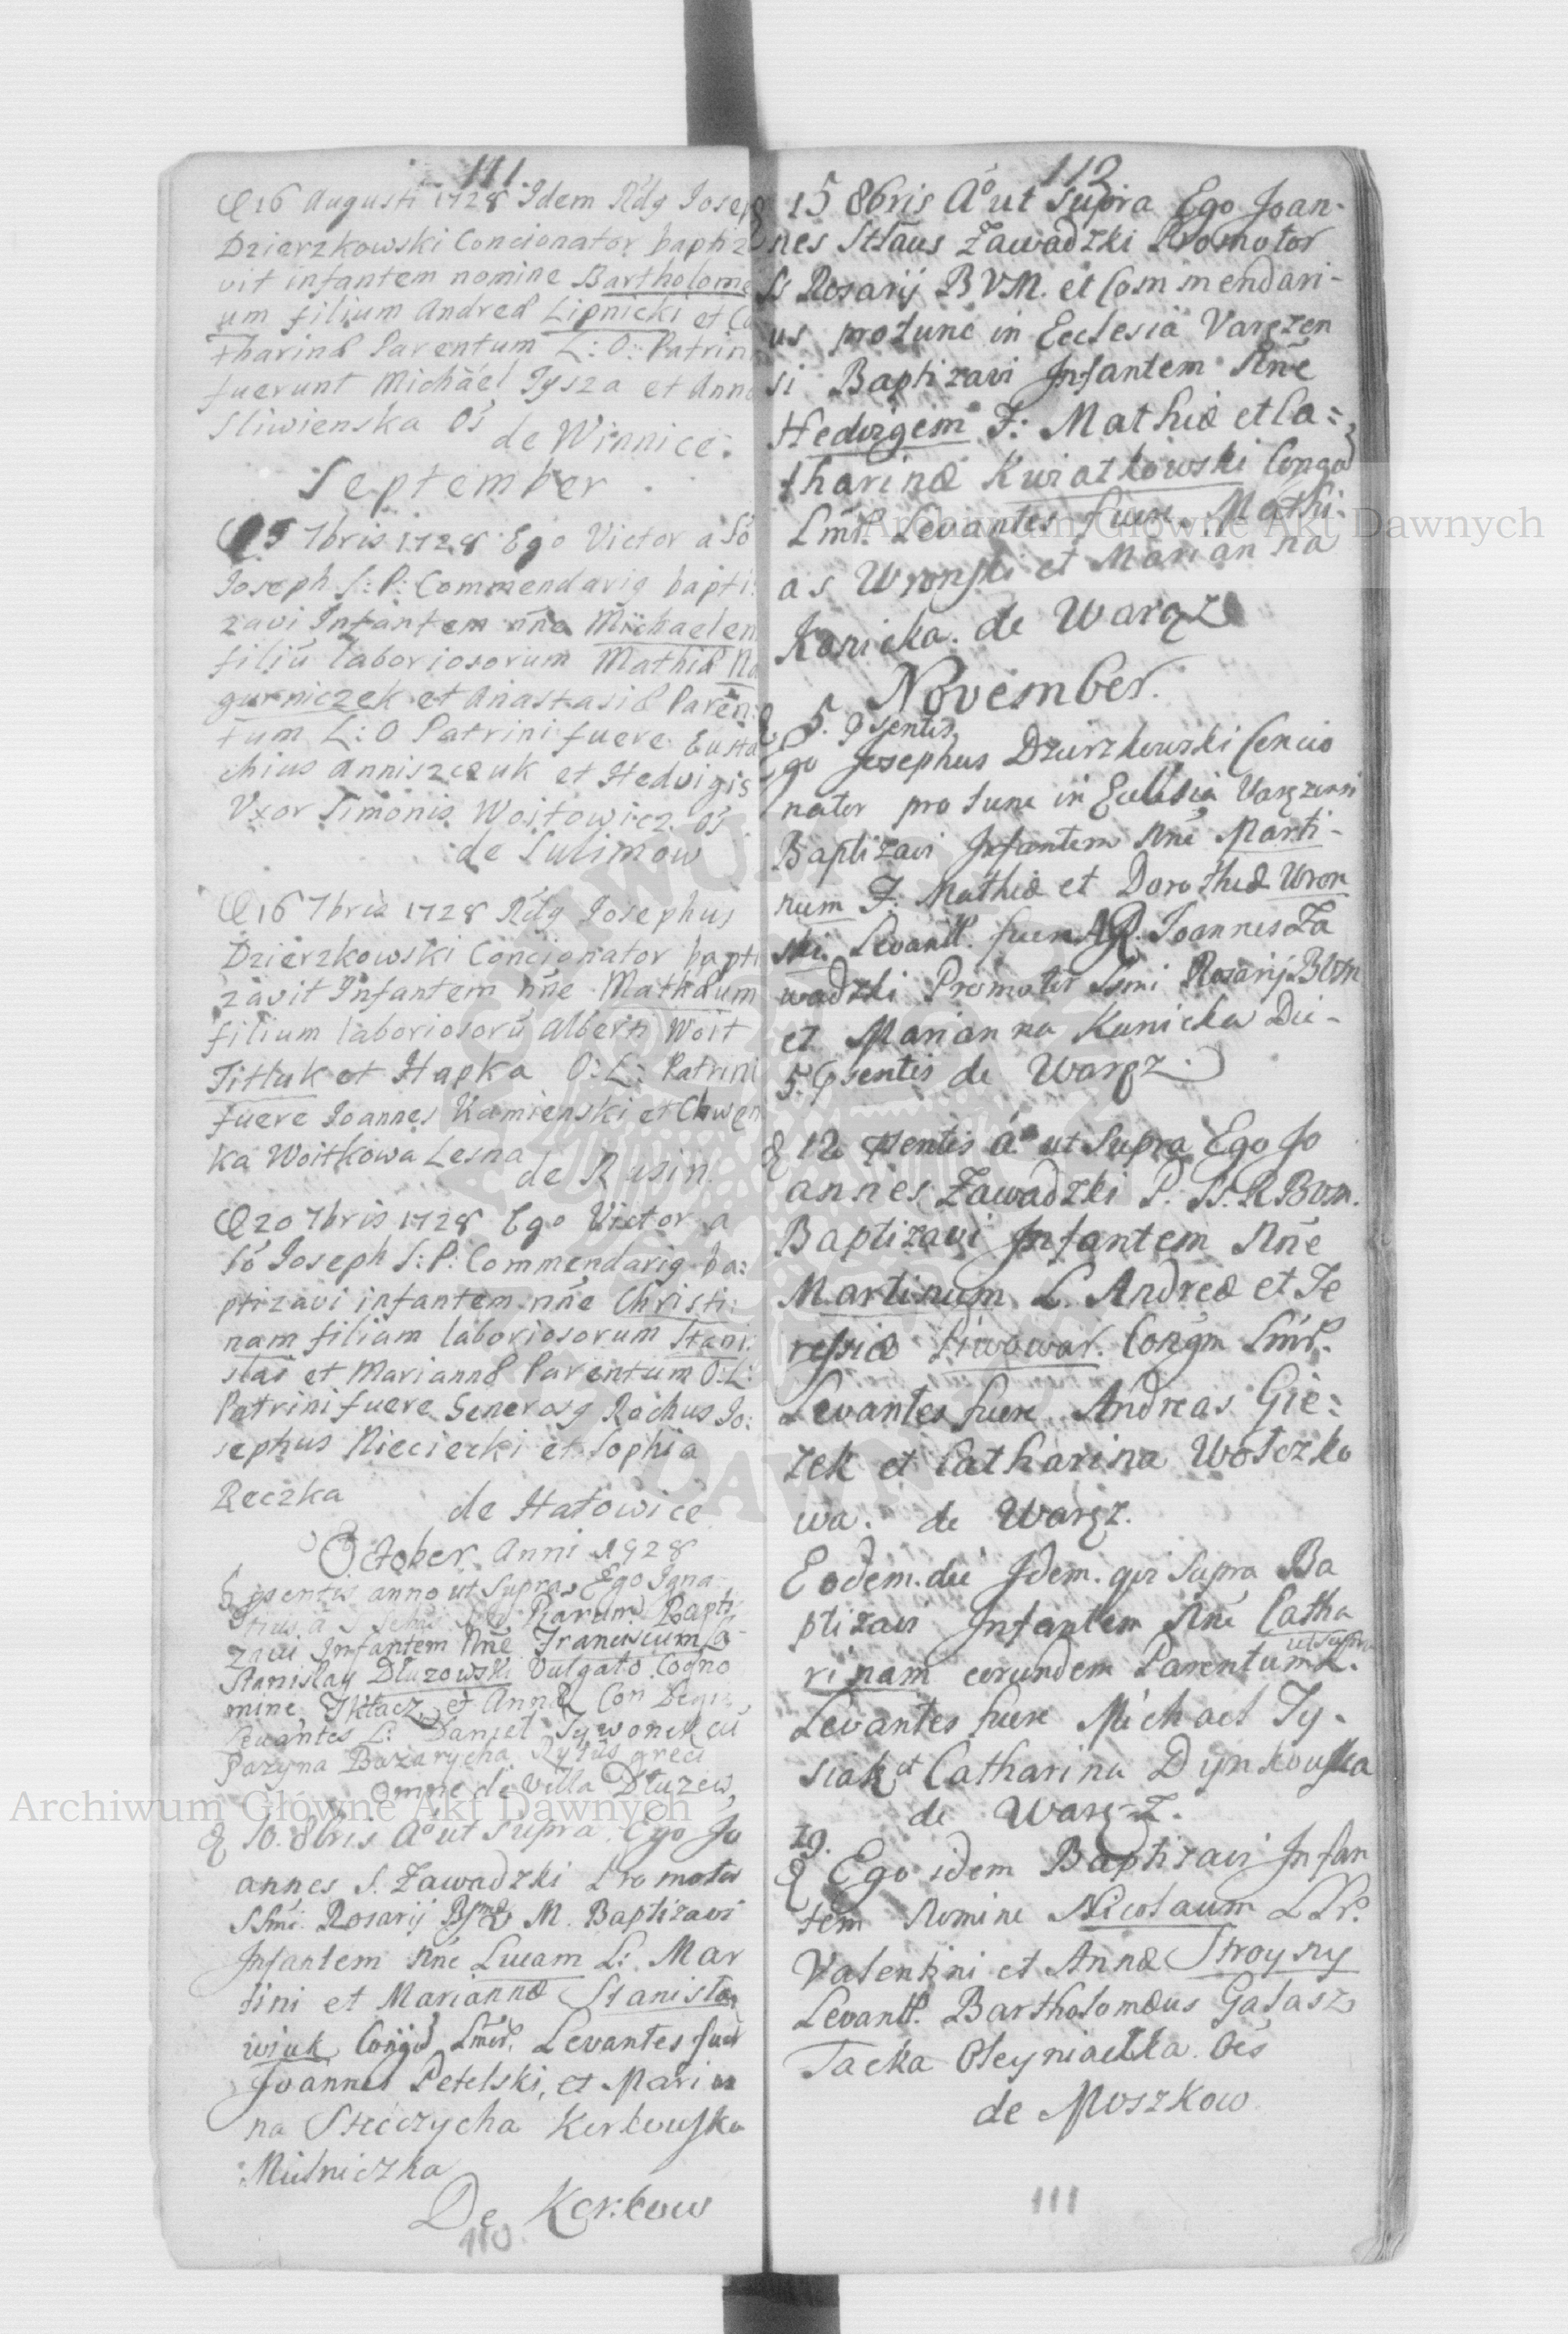 111.
16 Augusti 1728 Idem Rdg Joseph
Dzierzkowski Concionator baptiz
vit infantem nomine Bartholome
um filium Andreæ Lipnicki et Ca
tharinæ Parentum L: O: Patrin
fuerunt Michael Tysza et Anna
Sliwienska Os
de Winnice:
September
5 7bris 1728 Ego Victor a So
Joseph S: P: Commendarig bapti:
zavi Infantem nñe Michaelem
filiu laboriosorum Mathiæ No
gurniczek et Anastasiæ Paren:
tum L: O Patrini fuere Eusta
chius Anniszczuk et Hedvigis
Uxor Simonis Woitowicz os
de Sulimow
16 7bris 1728 Rdg Josephus
Dzierzkowski Concionator bapti
zavit Infantem nñe Mathæum
filium laboriosorũ Alberti Woit
Tittuk et Hapka O: L: Patrini
fuere Joannes Kamienski et Chwen
ka Woitkowa Lesna
de Rusin
20 7bris 1728 Ego Victor a
So Joseph S: P: Commendarig ba:
ptizavi infantem nñe Christi:
nam filiam laboriosorum Stani:
slai et Mariannæ Parentum O: L:
Patrini fuere Generosg Rochus Jo:
sephus Nieciecki et Sophia
Reczka
de Hatowice
October Anni 1728
6 psentis anno ut Supra Ego Igna
Piarum Bapti
zavi Infantem Nñe Franciscum
Stanislay Dłuzowski Vulgato Cogno
mine, Tkacz, et Annæ Con
Levantes L: Daniel Tywonek cũ
Pazyna Bazarycha Rytus greci
omne de Villa Dłuzew
10. 8bris Aõ ut Supra Ego Jo
annes S. Zawadzki Promotor
SSmi Rosarij M. Baptizavi
Infantem Nñe Lucam L: Mar
tini et Mariannæ Stanisła
wiuk Levantes fuer
Joannes Petelski, et Marian
na Steczycha Kerkowska
Mielniczka
De Korkow
110.
112
15 8bris Aõ ut Supra Ego Joan-
nes Stłaus Zawadzki Promotor
Ss Rosarij BVM. et Commendari-
us protunc in Ecclesia Varęzen
si Baptizavi Infantem Nñe
Hedvigem F: Mathiæ et Ca=
tharinæ Kwiatkowski
Levantes fuere Mathi-
as Wronski et Marianna
Kanicka. de Waręz
November.
5. psentis
Ego Josephus Dzierzkowski Concio
nator pro tunc in Ecclesia Varęzensi
Baptizavi Infantem Nñe Marti-
num F: Mathiæ et Dorotheæ Wron
ski. Levantt. fuere AR. Joannes Za
wadzki Promotor Ssmi Rosarij BVM
et Marianna Kanicka Die-
5 psentis de Waręz.
12 psentis Aõ ut Supra Ego Jo
annes Zawadzki P. Ss. R BVM.
Baptizavi Infantem Nñe
Martinum L. Andreæ et Te
ressiæ Piwowar.
Levantes fuere Andreas Gie:
zek et Catharina Wołczko
wa. de Waręz.
Eodem die Idem. qui Supra Ba
ptizavi Infantem Nñe Catha
ut supra
rinam eorundem Parentum L.
Levantes fuere Michael Ty-
siak et Catharina Dynkowska
de Waręz.
19.
Ego idem Baptizavi Infan
tem Nomine Nicolaum
Valentini et Annæ Stroyny
Levantt. Bartholomæus Gałasz
Tacka Oleyniacka. Oes
de Moszkow
111
Archiwum Główne Akt Dawnych
Archiwum Główne Akt Dawnych